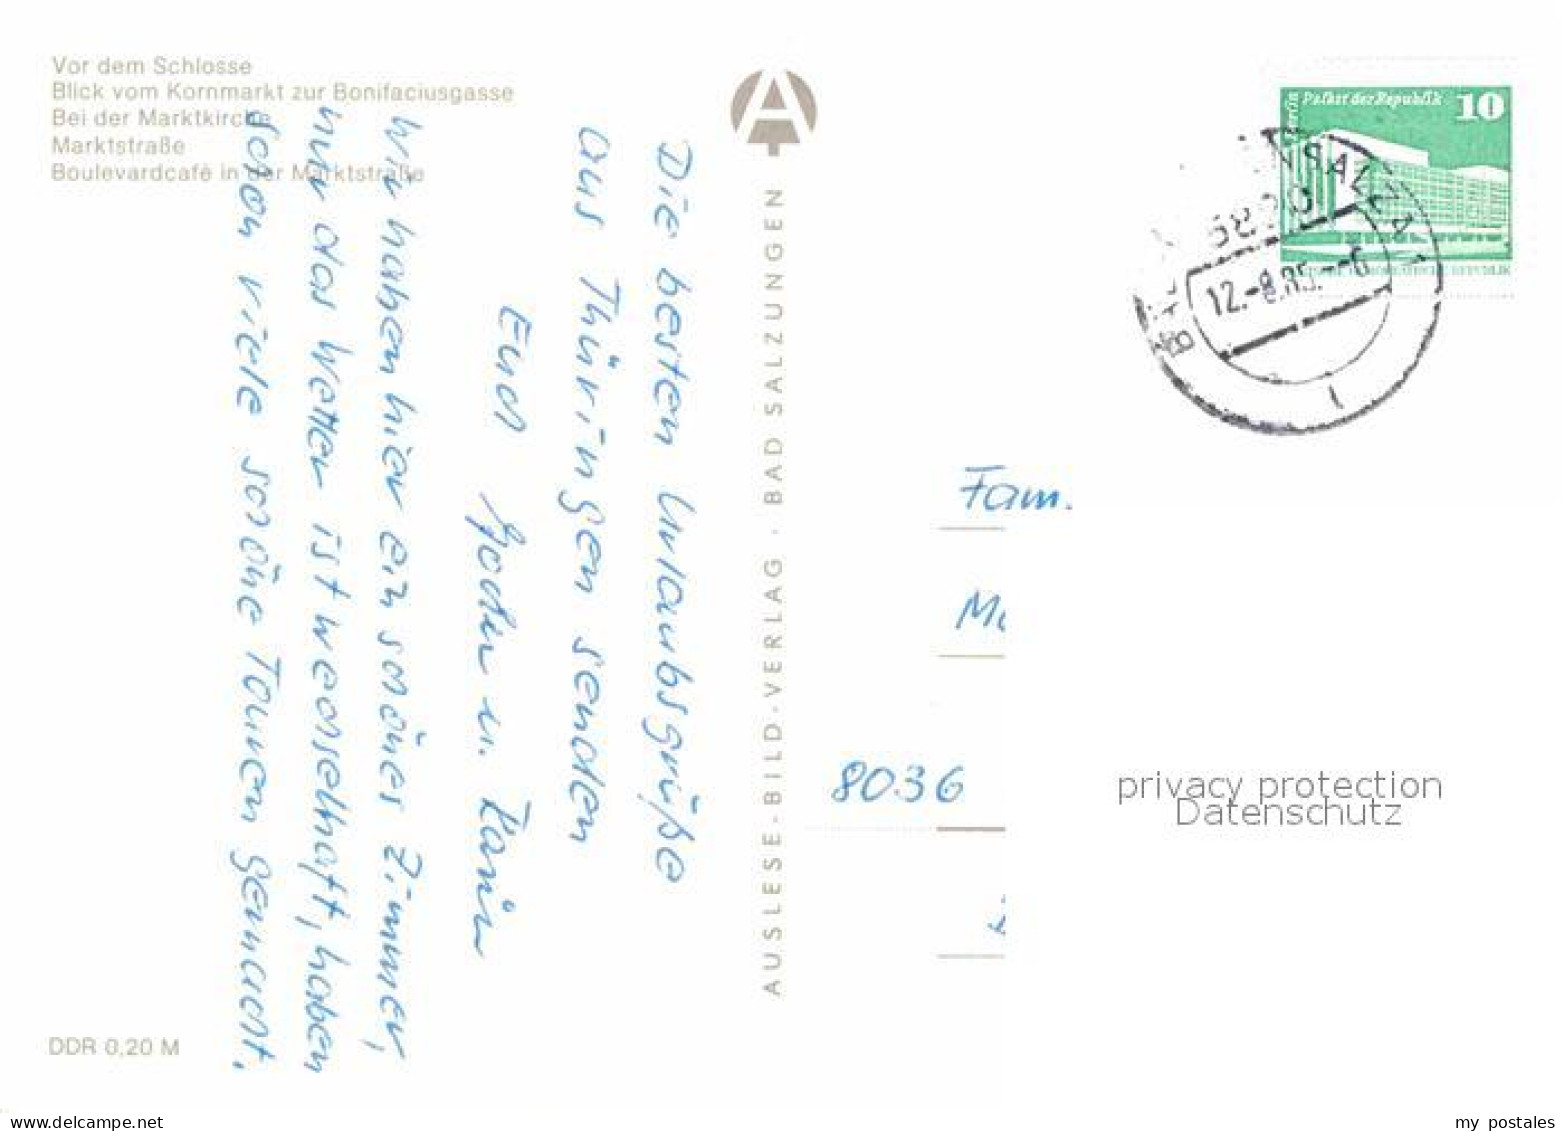 Vor dem Schlosse
Blick vom Kornmarkt zur Bonifaciusgasse
Bei der Marktkirche
Marktstraße
Boulevardcafé in der Marktstraße
Die besten Urlaubsgrüße
aus Thüringen senden
Euch
u. Karin
Wir haben hier ein schönes Zimmer,
nur das Wetter ist wechselhaft, haben
schon viele schöne Touren gemacht.
DDR 0,20 M
AUSLESE-BILD-VERLAG · BAD SALZUNGEN
Palast der Republik 10
12.-8.85.--6
Fam.
8036
privacy protection
Datenschutz
www.delcampe.net
my_postales